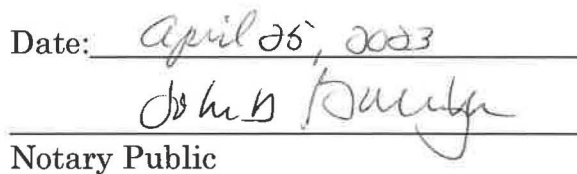 Date: April 25, 2023
John D
Notary Public